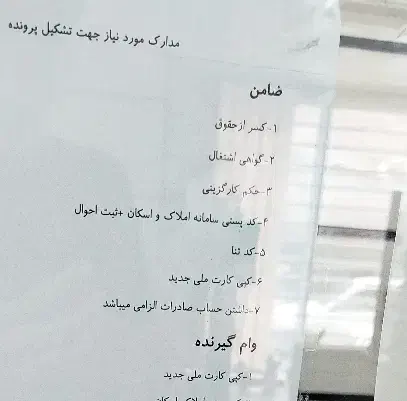 مدارک مورد نیاز جهت تشکیل پرونده
ضامن
۱-کسر از حقوق
۲-گواهی اشتغال
۳-حکم کارگزینی
۴-کد پستی سامانه املاک و اسکان +ثبت احوال
۵-کد ثنا
۶-کپی کارت ملی جدید
۷-داشتن حساب صادرات الزامی میباشد
وام گیرنده
۱-کپی کارت ملی جدید